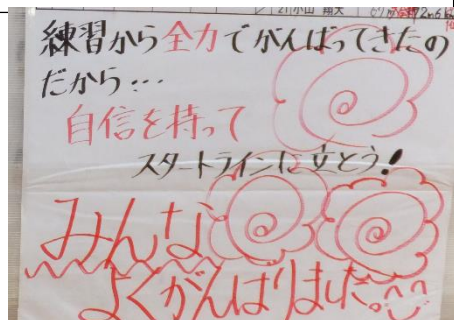 練習から全力でがんばってきたの
だから…
自信を持って
スタートラインに立とう!
みんな
よくがんばりました。